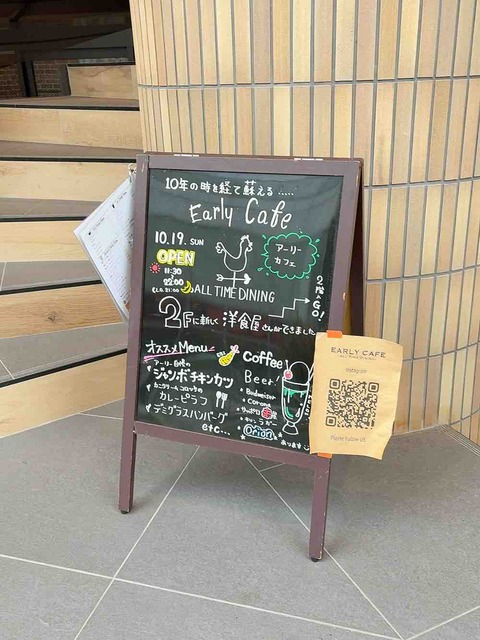 10年の時を経て蘇える.....
Early Cafe
10.19. SUN
OPEN
11:30
22:00
(L.O. 21:00)
アーリー
カフェ
ALL TIME DINING
2階へGO!
2Fに新しく 洋食屋さんができました
オススメMenu
アーリー自慢の
ジャンボチキンカツ
カニクリームコロッケの
カレーピラフ
デミグラスハンバーグ
etc...
Coffee
Beer!
Budweiser
Corona
Orion
あります
EARLY CAFE
ALL TIME DINING
Instagram
Please Follow US